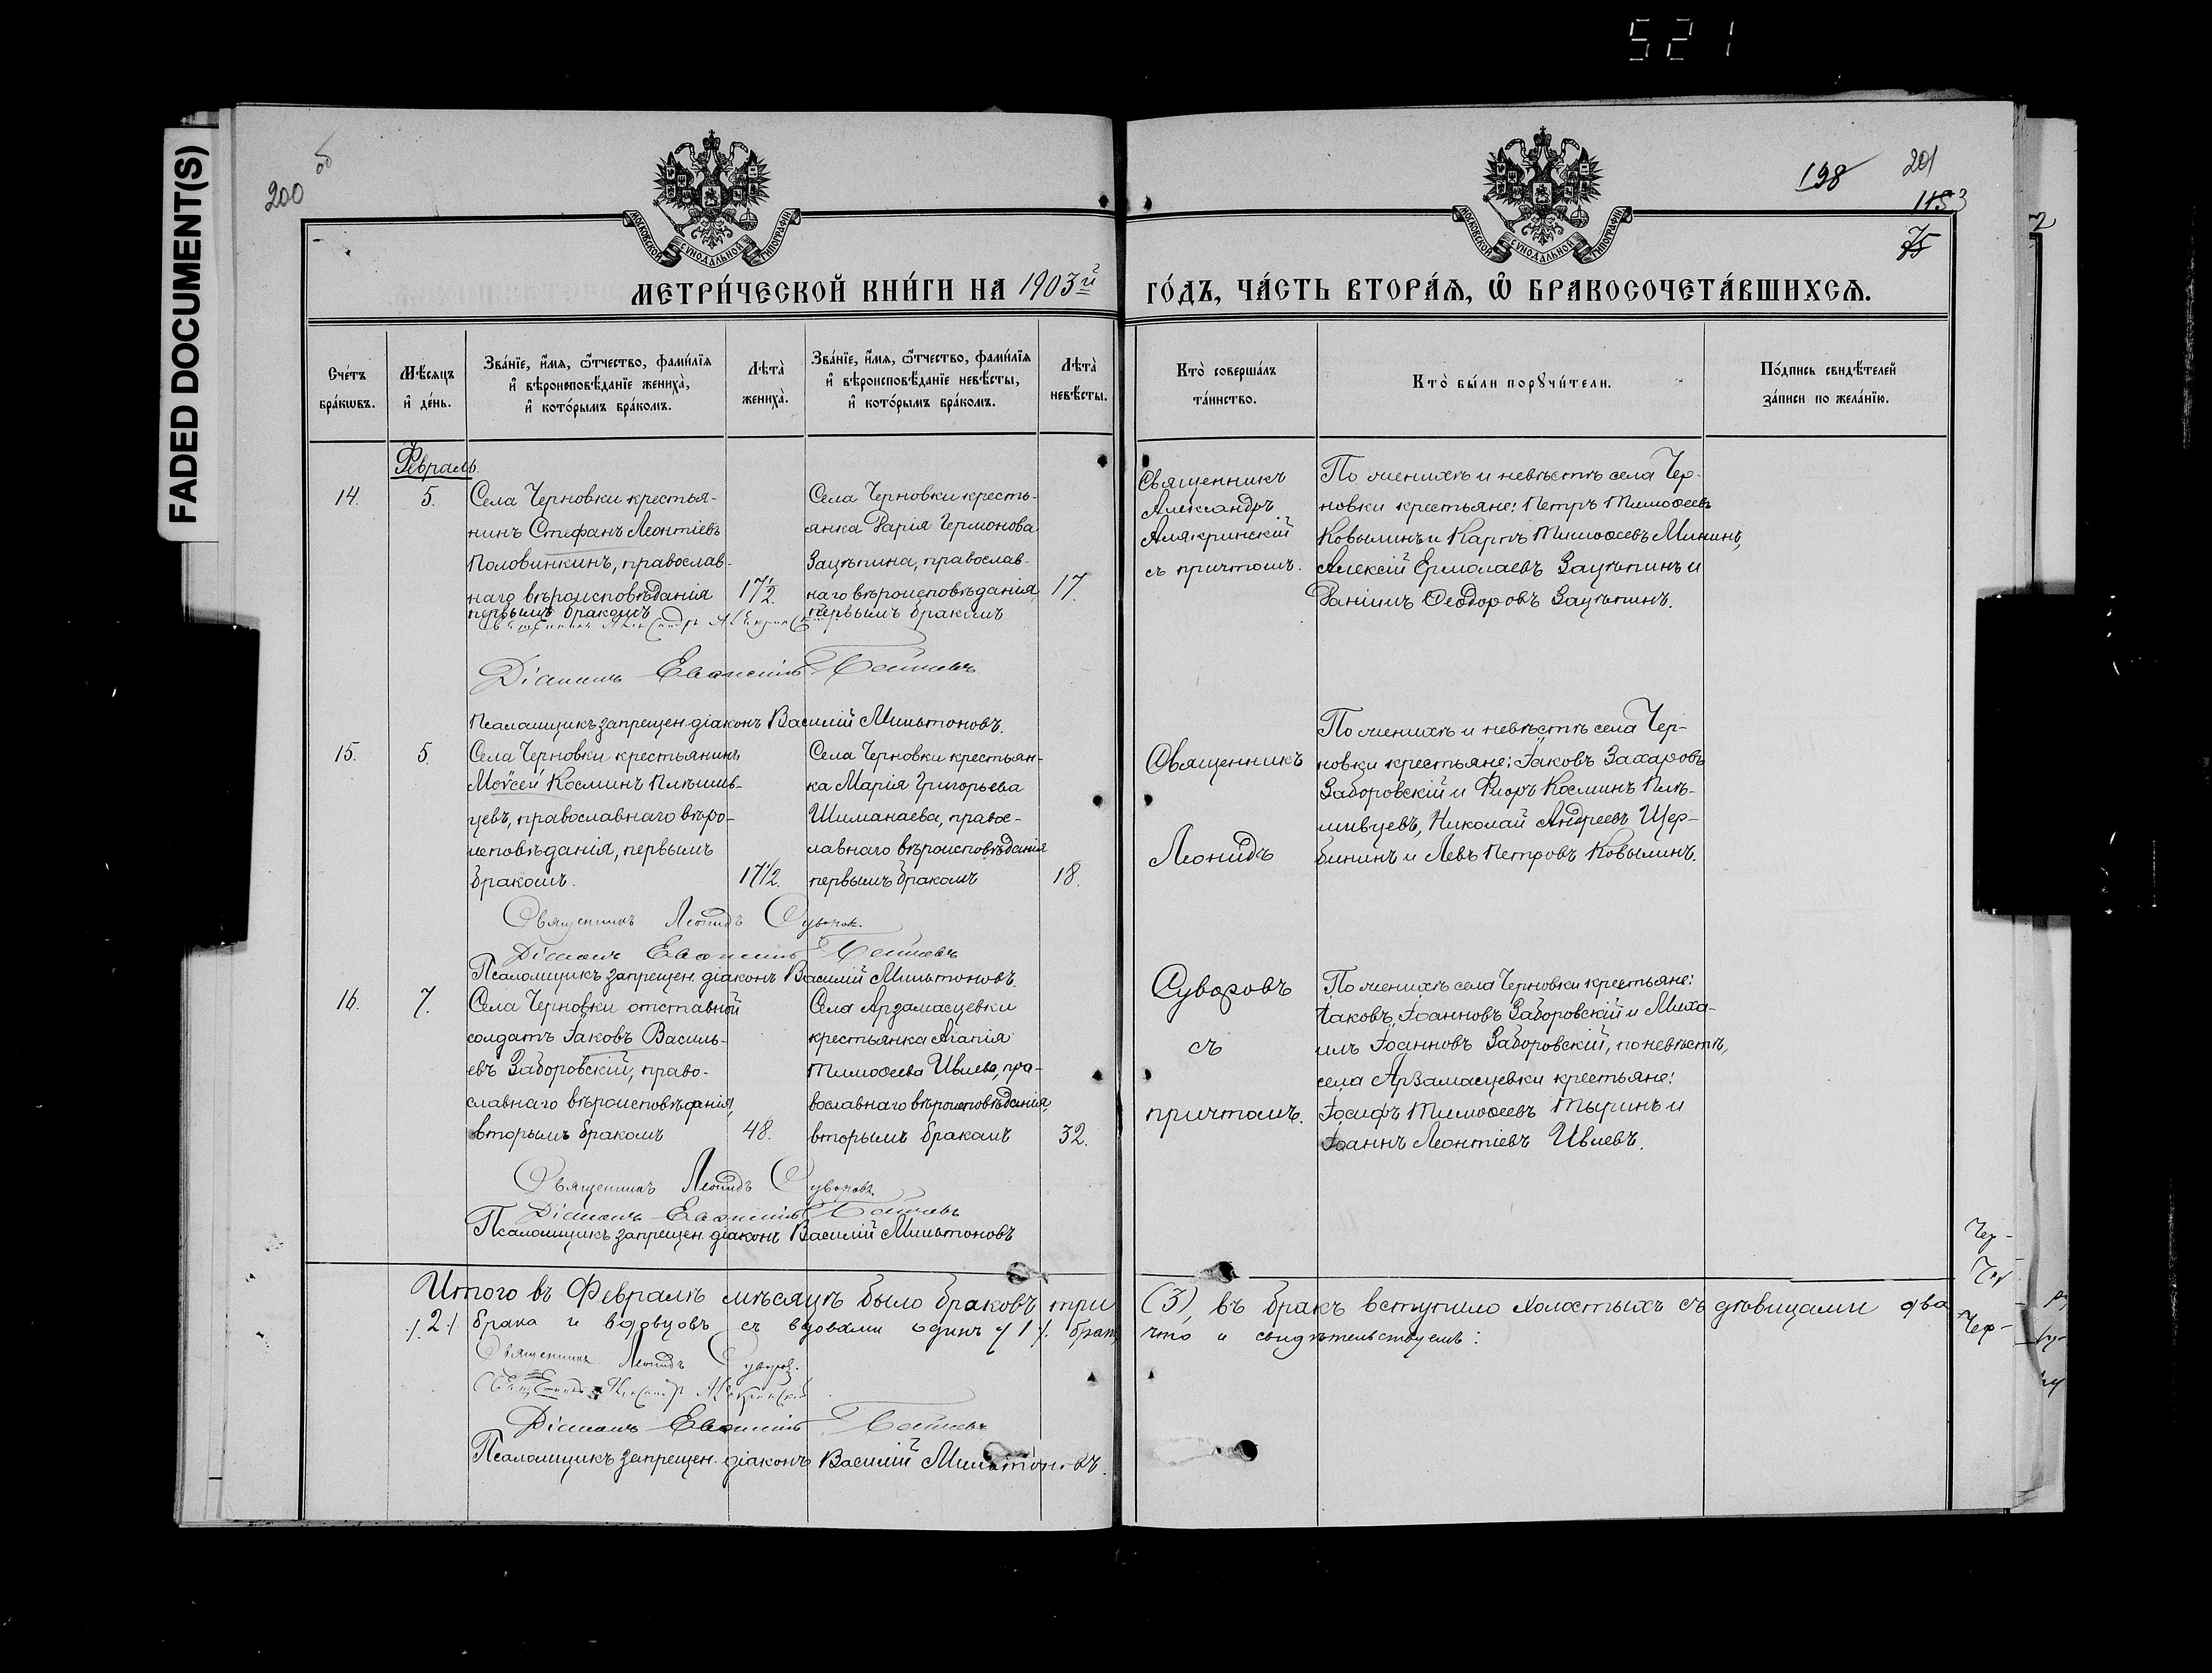 521
FADED DOCUMENT(S)
200 об
198
201
МОСКОВСКОЙ СѴНОДАЛЬНОЙ ТИПОГРАФІИ
МОСКОВСКОЙ СѴНОДАЛЬНОЙ ТИПОГРАФІИ
МЕТРИ́ЧЕСКОЙ КНИ́ГИ НА 1903й ГО́ДЪ, ЧА́СТЬ ВТОРА́Ѧ, Ѡ҆ БРАКОСОЧЕТА́ВШИХСѦ.
Сче́тъ
бра́кѡвъ.
Мѣ́сѧцъ
и҆ де́нь.
Зва́нїе, и҆́мѧ, ѻ҆́тчество, фами́лїѧ
и҆ вѣроисповѣ́данїе жениха̀,
и҆ кото́рымъ бра́комъ.
Лѣта̀
жениха̀.
Зва́нїе, и҆́мѧ, ѻ҆́тчество, фами́лїѧ
и҆ вѣроисповѣ́данїе невѣ́сты,
и҆ кото́рымъ бра́комъ.
Лѣта̀
невѣ́сты.
Кто̀ соверша́лъ
та́инство.
Кто̀ бы́ли порꙋчи́тели.
По́дпись свидѣ́телей
за́писи по жела́нїю.
Февраль.
14.
5.
Села Черновки крестья-
нинъ Стефанъ Леонтіевъ
Половинкинъ, православ-
наго вѣроисповѣданія
первымъ бракомъ
17½.
Села Черновки кресть-
янка Дарія Гермонова
Зацѣпина, православ-
наго вѣроисповѣданія
первымъ бракомъ
17.
Священникъ
Александръ
Алякринскій
съ причтомъ.
По женихѣ и невѣстѣ села Чер-
новки крестьяне: Петръ Тимоѳеевъ
Ковылинъ и Карпъ Тимоѳеевъ Мининъ,
Алексій Ермолаевъ Зацѣпинъ и
Даніилъ Ѳеодоровъ Зацѣпинъ.
Діаконъ Евѳимій
Псаломщикъ запрещен. діаконъ Василій Мильтоновъ.
15.
5.
Села Черновки крестьянинъ
Моѵсей Косминъ Плѣшив-
цевъ, православнаго вѣро-
исповѣданія, первымъ
бракомъ.
17½.
Села Черновки крестьян-
ка Марія Григорьева
Шиманаева, правос-
лавнаго вѣроисповѣданія
первымъ бракомъ
18.
Священникъ
Леонидъ
Суворовъ
съ
причтомъ.
По женихѣ и невѣстѣ села Чер-
новки крестьяне: Іаковъ Захаровъ
Заборовскій и Флоръ Косминъ Плѣ-
шивцевъ, Николай Андреевъ Щер-
бининъ и Левъ Петровъ Ковылинъ.
Священникъ Леонидъ Суворов.
Діаконъ Евѳимій
Псаломщикъ запрещен. діаконъ Василій Мильтоновъ.
16.
7.
Села Черновки отставной
солдатъ Іаковъ Василь-
евъ Заборовскій, право-
славнаго вѣроисповѣданія,
вторымъ бракомъ
48.
Села Арзамасцевки
крестьянка Агапія
Тимоѳеева Ивлева, пра-
вославнаго вѣроисповѣданія,
вторымъ бракомъ
32.
По женихѣ села Черновки крестьяне:
Іаковъ Іоанновъ Заборовскій и Миха-
илъ Іоанновъ Заборовскій, по невѣстѣ,
села Арзамасцевки крестьяне:
Іосифъ Тимоѳеевъ Тыринъ и
Іоаннъ Леонтіевъ Ивлевъ.
Священникъ Леонидъ Суворовъ.
Діаконъ Евѳимій
Псаломщикъ запрещен. діаконъ Василій Мильтоновъ
Итого въ Февралѣ мѣсяцѣ было браковъ три (3), въ бракъ вступило холостыхъ съ дѣвицами два
/.2./. брака и вдовцовъ съ вдовами одинъ /.1./. бракъ, что и свидѣтельствуемъ:
Священникъ Леонидъ Суворов.
Священникъ Александръ Алякринскій
Діаконъ Евѳимій
Псаломщикъ запрещен. діаконъ Василій Мильтоновъ.
Чер-
Чер-